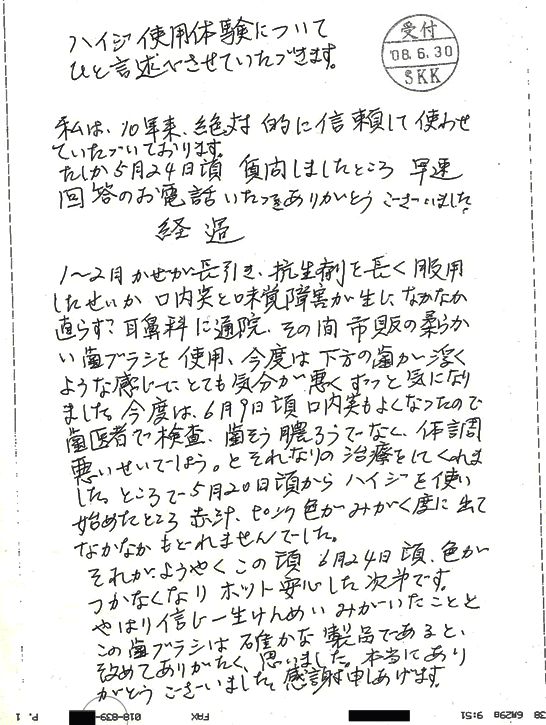 ハイジ使用体験について
ひと言述べさせていただきます。
受付
'08.6.30
SKK
私は、10年来、絶対的に信頼して使わせ
ていただいております。
たしか5月24日頃 質問しましたところ 早速
回答のお電話いただきありがとうございました。
経過
1〜2月かぜが長引き、抗生剤を長く服用
したせいか 口内炎と味覚障害が生じ、なかなか
直らず 耳鼻科に通院、その間 市販の柔らか
い歯ブラシを使用、今度は 下方の歯が浮く
ような感じで、とても気分が悪く ずっと気になり
ました。今度は、6月9日頃 口内炎もよくなったので
歯医者で検査、歯そう膿ろうでなく、体調
悪いせいでしょう。と それなりの治療をしてくれま
した。ところで 5月20日頃から ハイジを使い
始めたところ 赤汁、ピンク色がみがく度に出て
なかなかもどれませんでした。
それが、ようやくこの頃 6月24日頃、色が
つかなくなり ホット安心した次第です。
やはり信じ一生けんめいみがいたことと
この歯ブラシは確かな製品であると、
改めてありがたく、思いました。本当にあり
がとうございました。感謝申しあげます。
38 6月29日 9:51
FAX
018-839-
P. 1